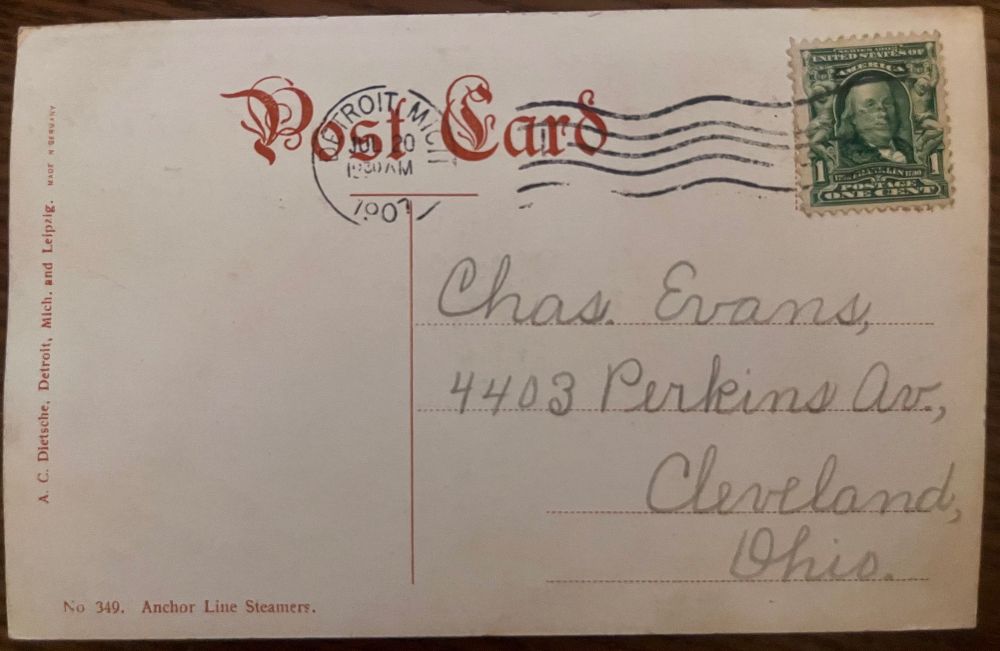 Post Card
DETROIT, MICH
JUL 20
1907
SERIES 1902
UNITED STATES OF
AMERICA
1 FRANKLIN 1
POSTAGE
ONE CENT
Chas. Evans,
4403 Perkins Av.,
Cleveland,
Ohio.
A. C. Dietsche, Detroit, Mich. and Leipzig. MADE IN GERMANY
No 349. Anchor Line Steamers.